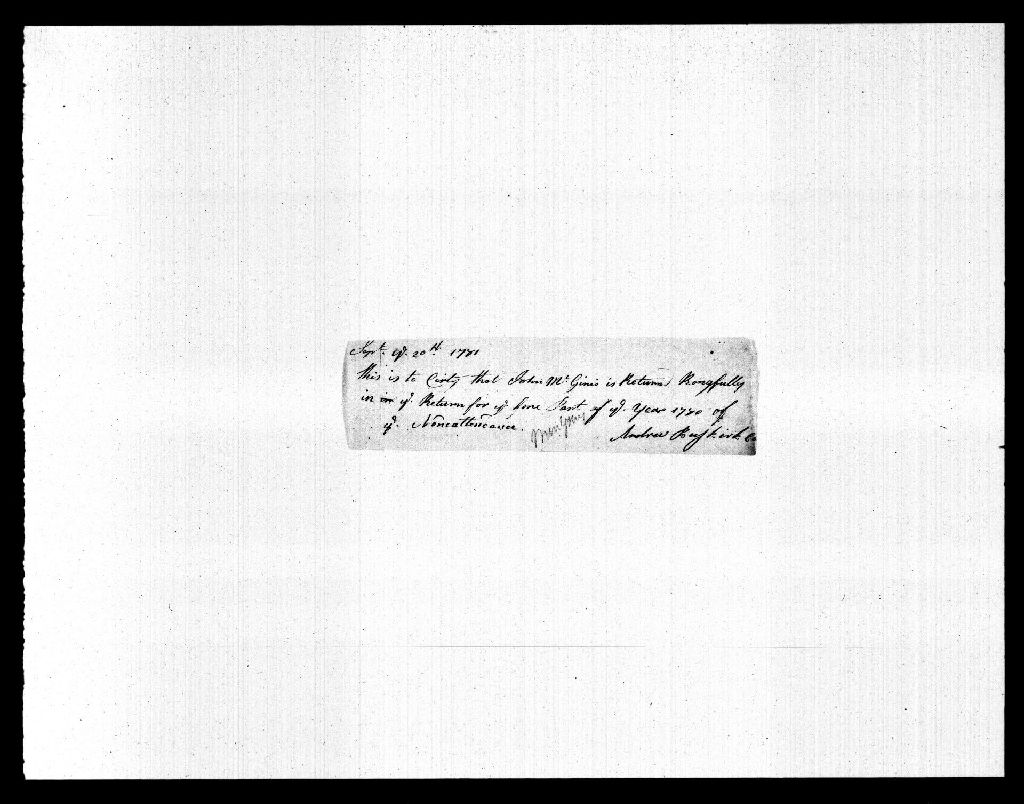 Sept. ye. 20th. 1781
this is to Certy that John Mc Ginis is Returnd Rongfully
in ye. Return for ye fore Part of ye. Year 1780 of
ye. Noneattencance.
Andrew Buskirk Co